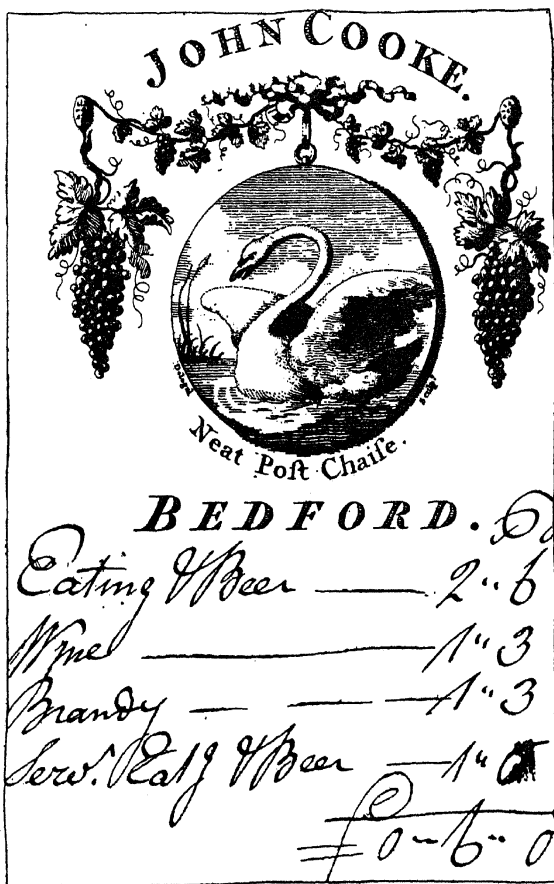 JOHN COOKE.
Neat Poſt Chaiſe.
BEDFORD.
Eating & Beer — 2 " 6
Wine — 1 " 3
Brandy — — — 1 " 3
Serv.ts Eatg & Beer — 1 "
£ 0 " 6 " 0